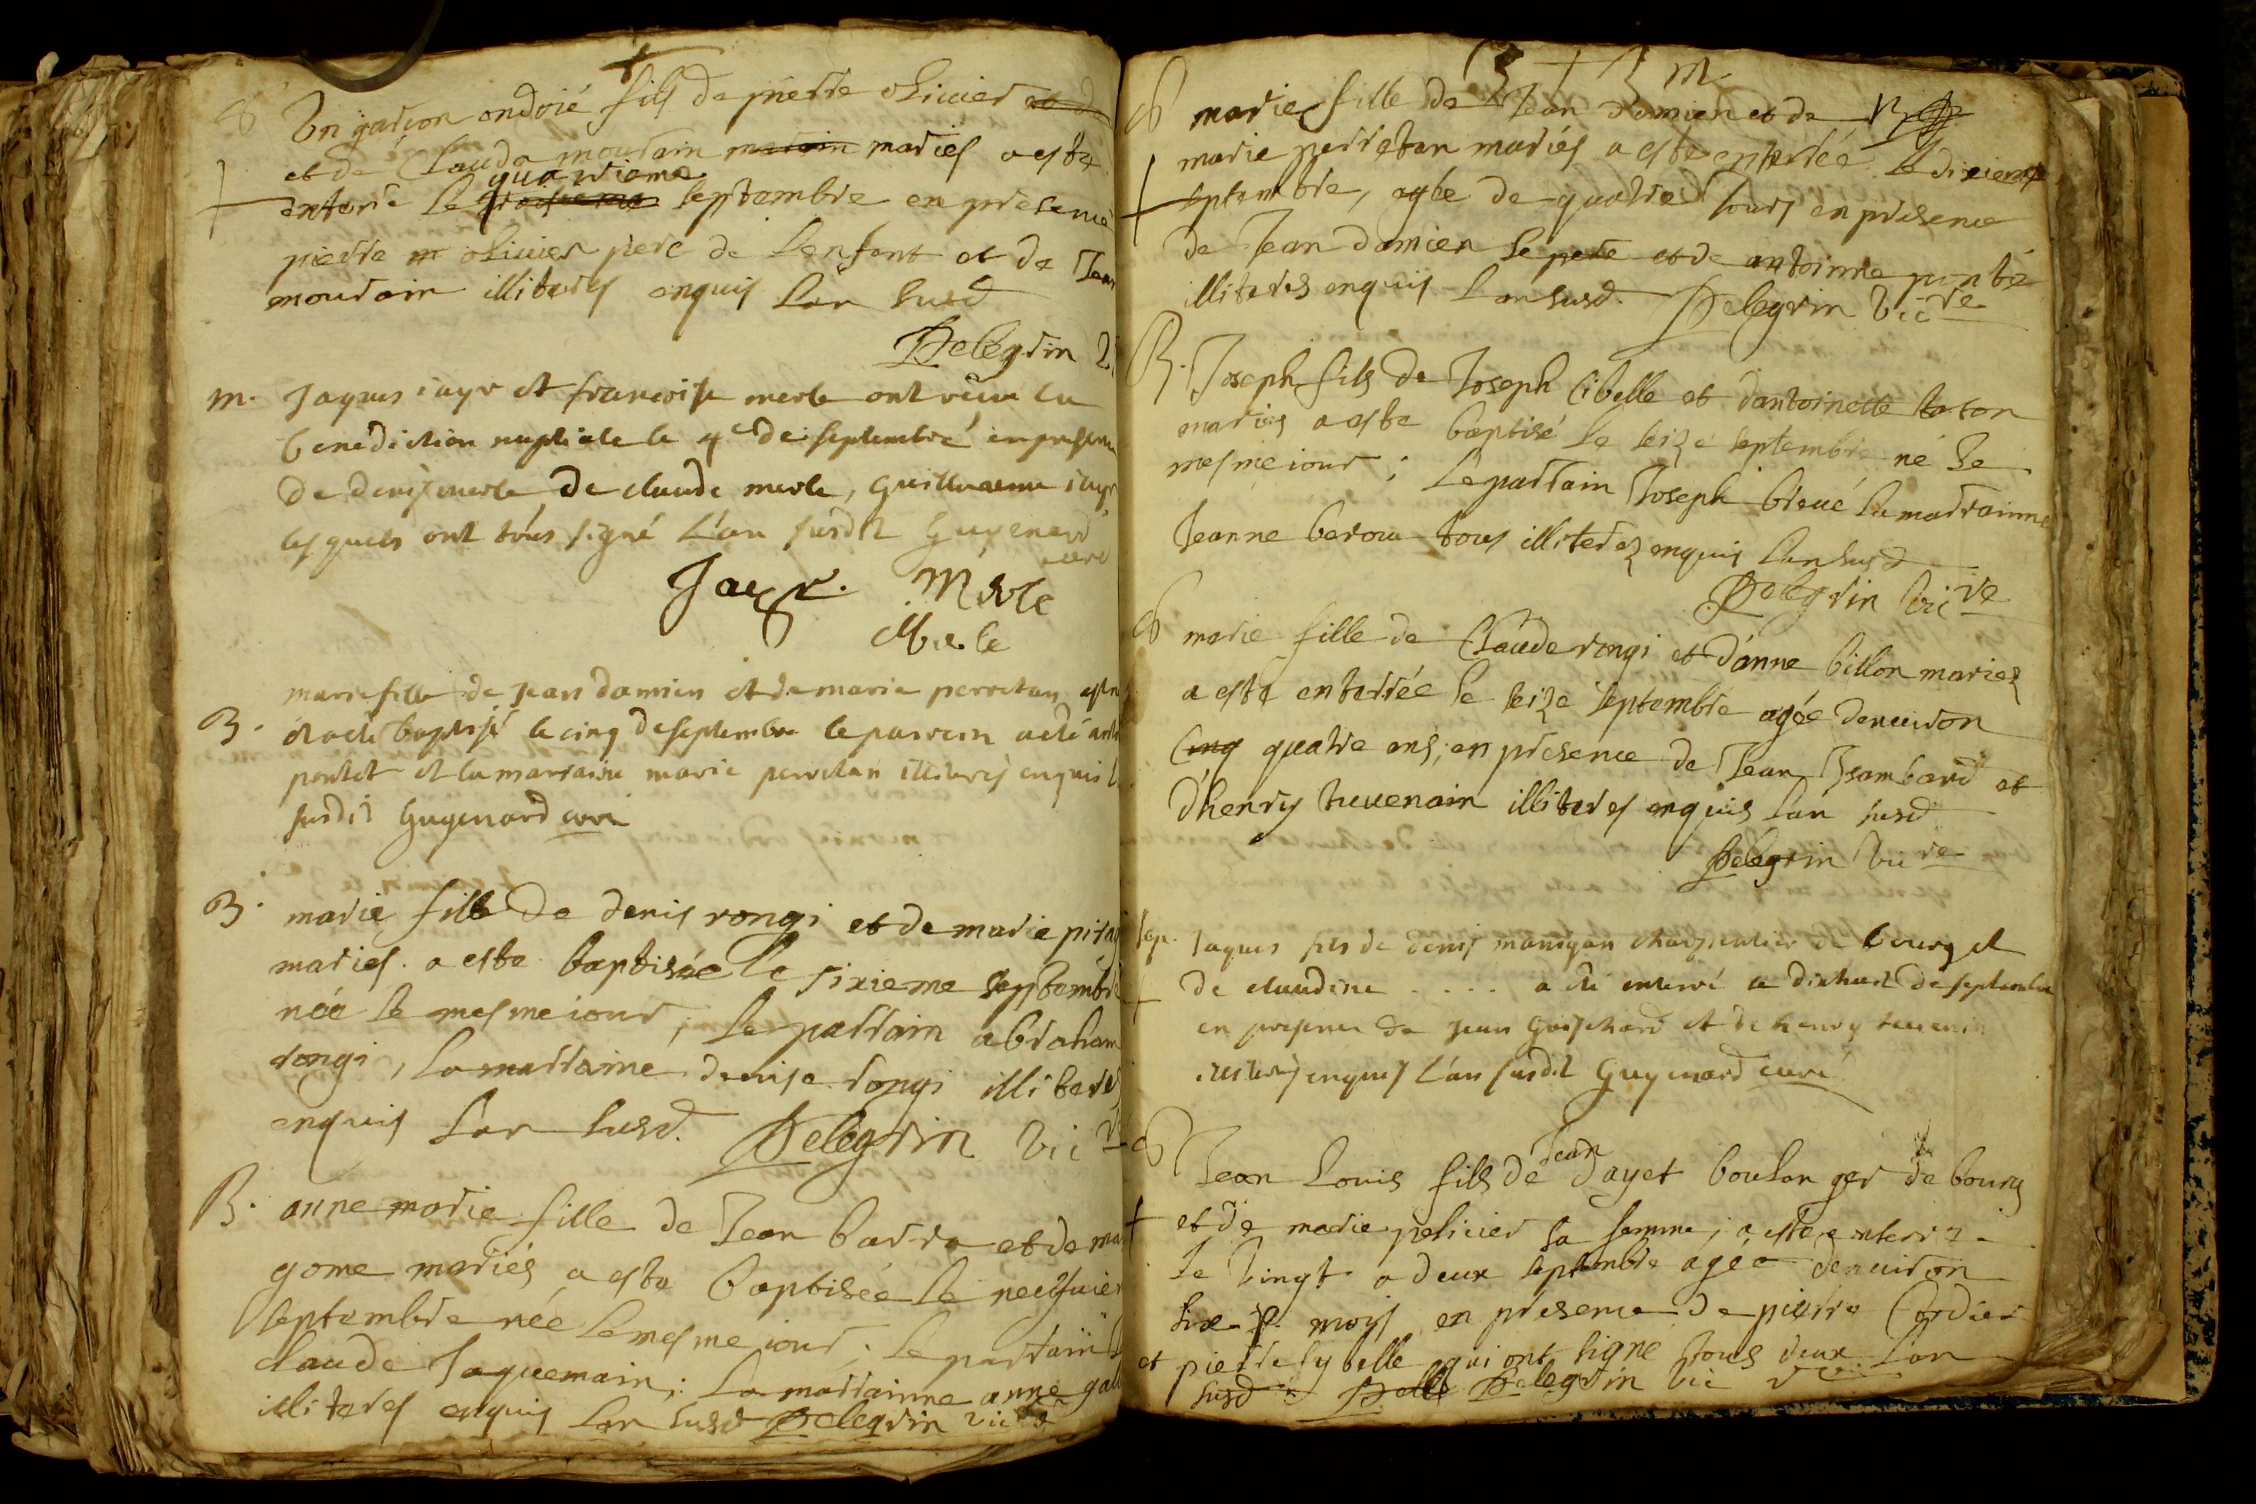 Un garçon ondoié fils de pierre olivier et d
et de Claude mourain mourain mariés a este
quatrieme
enterré le septembre en presence
pierre m olivier pere de l'enfant et de Jean
mourain illiteres enquis l'an susd
Pelegrin
m. Jaques iayr et francoise merle ont receu la
benediction nuptiale le 4e de septembre en presence
de denis merle de claude merle, Guillaume iayr
lesquels ont tous signé l'an susdit Guynard
curé
Jayr. Merle
Merle
marie fille de jean damien et de marie perretan est né
B. et a eté baptisé le cinq de septembre le parrein a eté anto
pontet et la marraine marie perretan illiteres enquis l
susdit Guynard curé
B. marie fille de denis rongi et de marie pira
mariés a este baptisée le sixieme septembre
née le mesme iour; le parrain abraham
rongi, la marraine denise rongi illiteres
enquis l'an susd. Pelegrin vic re
B. anne marie fille de Jean barra et de ma
gome mariés a este baptisée le neufuiem
septembre née le mesme iour; le parrain
claude Jaquemain; la marrainne anne gal
illiteres enquis l'an susd Pelegrin vic re
B + B m.
marie fille de Jean damien et de
marie perretan mariés a este enterrée le dixieme
septembre, agée de quatre iours en presence
de Jean damien le pere et de antoinne ponté
illiteres enquis l'an susd. Pelegrin vic re
B. Joseph fils de Joseph Cibelle et d'antoinette taton
mariés a este baptisé le seize septembre né le
mesme iour; le parrain Joseph broué la marrainne
Jeanne berou tous illiterez enquis l'an susd
Pelegrin vic re
marie fille de Claude rongi et d'anne billon mariez
a este enterrée le seize septembre agée denuiron
Cinq quatre ans; en presence de Jean Isambard et
d'henry tuuenain illiteres enquis l'an susd
Pelegrin vic re
Sep. Jaques fils de denis manigan charpentier de bourg et
de claudine . . . . a eté enterré le dixhuit de septembre
en presence de jean Guichard et de henry teuenin
illiteres enquis l'an susdit Guynard curé
Jean
Jean Louis fils de Dayet boulanger de bourg
et de marie pelicier sa femme; a este enterré
le vingt a deux septembre agée denuiron
six mois en presence de pierre Cordier
et pierre sybelle qui ont signé tous deux l'an
susd Pelegrin vic re